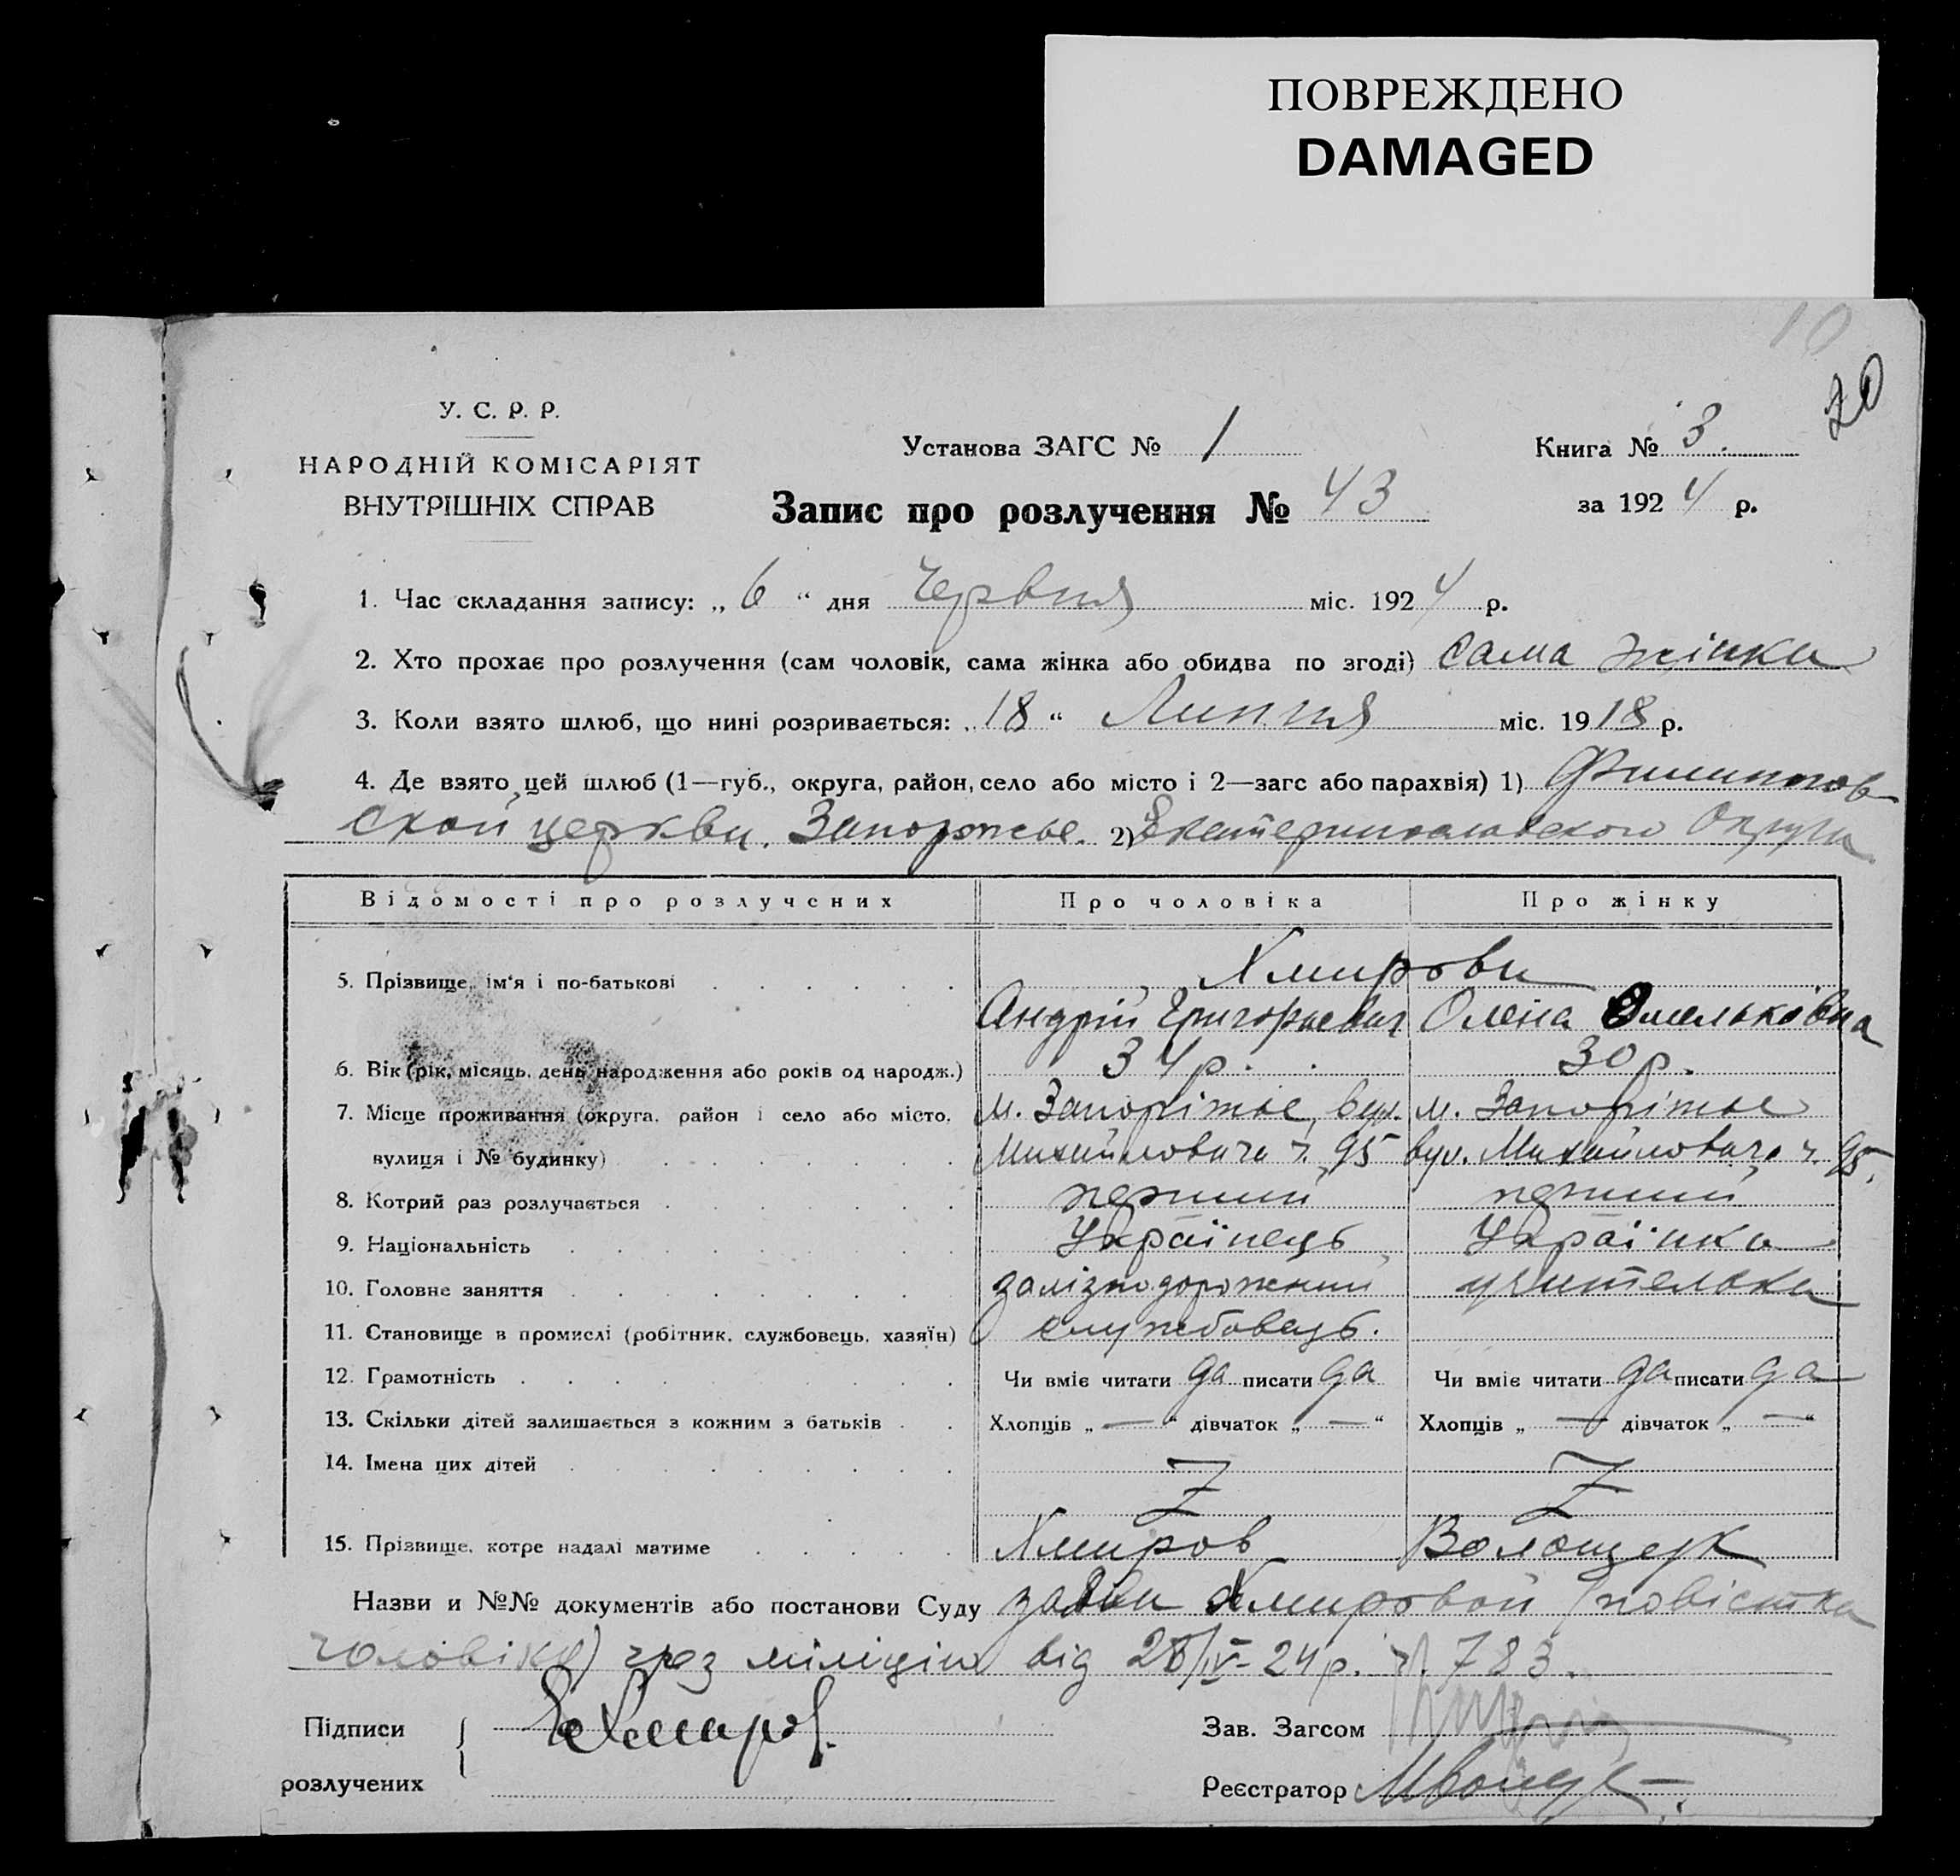 ПОВРЕЖДЕНО
DAMAGED
10
20
У. С. Р. Р.
НАРОДНІЙ КОМІСАРІЯТ
ВНУТРІШНІХ СПРАВ
Установа ЗАГС № 1
Книга № 3.
Запис про розлучення № 43
за 1924 р.
1. Час складання запису: „ 6 “ дня Червня міс. 1924 р.
2. Хто прохає про розлучення (сам чоловік, сама жінка або обидва по згоді) сама жінка
3. Коли взято шлюб, що нині розривається: „ 18 “ Липня міс. 1918 р.
4. Де взято цей шлюб (1—губ., округа, район, село або місто і 2—загс або парахвія) 1)
ской церкви. Запорожье. 2) Екатеринославского Округа
Відомості про розлучених Про чоловіка Про жінку
5. Прізвище, ім'я і по-батькові Хмирови
Андрій Григориевич Олена Омельковна
6. Вік (рік, місяць, день народження або років од народж.) 34 р. 30 р.
7. Місце проживання (округа, район і село або місто, м. Запоріжье, вул. м. Запоріжье
вулиця і № будинку) Михайловича ч. 95 вул. Михайловича ч. 95.
8. Котрий раз розлучається перший перший
9. Національність Українець Українка
10. Головне заняття залізнодорожний учителька
11. Становище в промислі (робітник, службовець, хазяїн) службовець.
12. Грамотність Чи вміє читати да писати да Чи вміє читати да писати да
13. Скільки дітей залишається з кожним з батьків Хлопців „ — “ дівчаток „ — “ Хлопців „ — “ дівчаток „ — “
14. Імена цих дітей
15. Прізвище, котре надалі матиме Хмиров Волощук
Назви и №№ документів або постанови Суду заяви Хмировой (повістка
чоловіку) чрез міліцію від 28/IV-24 р. ч. 783.
Підписи
розлучених
Зав. Загсом
Реєстратор